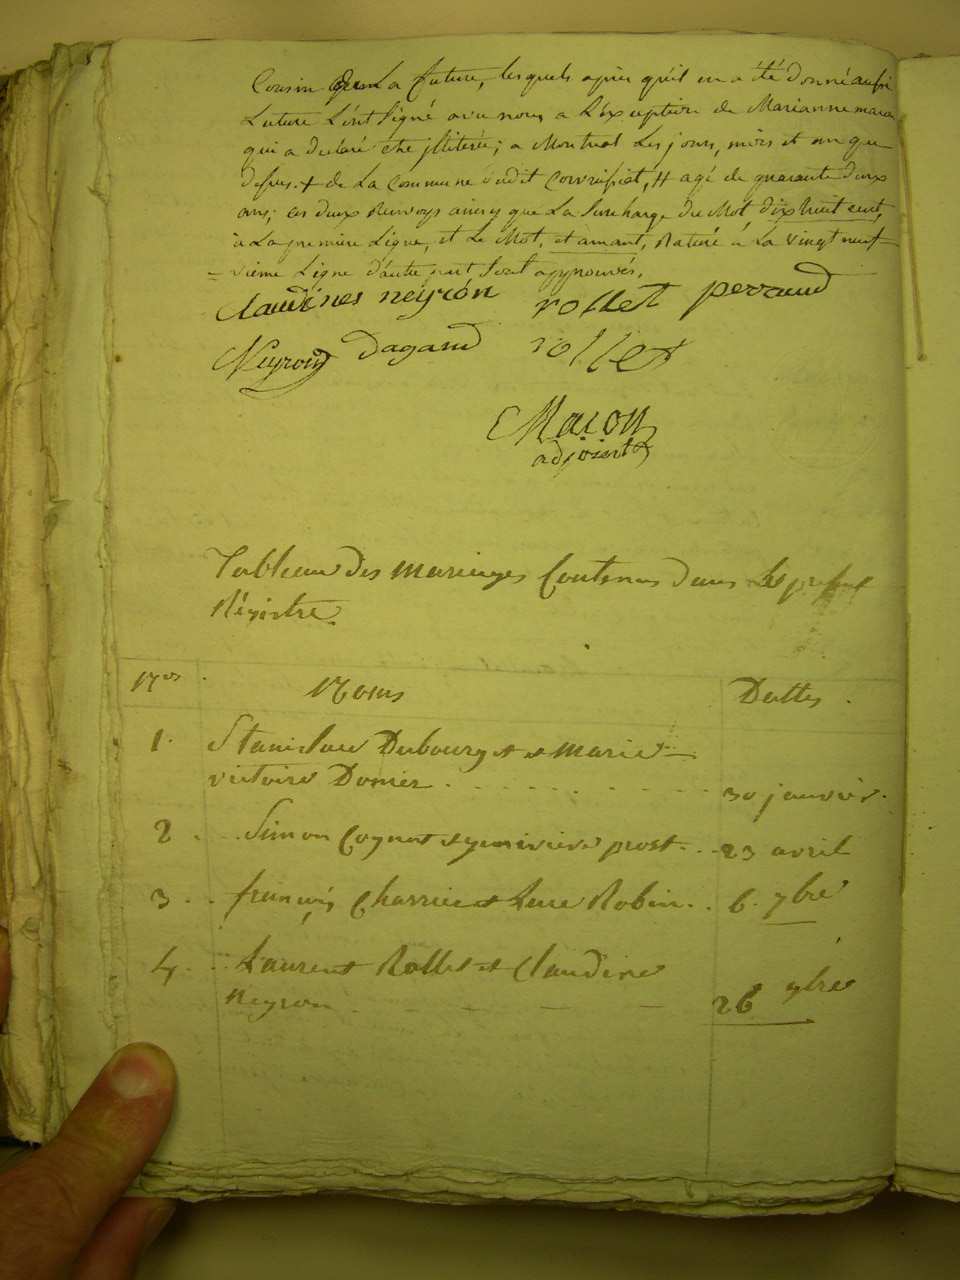 Cousin de La future, lesquels après qu'il en a été donné aussi
Lecture L'ont signé avec nous a L'exception de Marianne mara
qui a déclaré etre illiterée; a Montreal Les jours, mois et an que
dessus. + de La commune dudit Corvessiat, # agé de quarante deux
ans; ces deux Renvoys ainsy que La surcharge du Mot dix huit cent,
à La premiere Ligne, et Le Mot, et amant, Raturé à La vingt neuf
vieme Ligne d'autre part Sont approuvés.
claudines neyron rollet perraud
Neyron dagand rollet
Maron
adjoint
Tableau des mariages Contenus dans Le present
Régistre.
Nos. Noms Dattes.
1. Stanislae Dubourget et marie
victoire Domier . . . . . . . . . 30 janvier.
2. Simon Cognat et genevieve prost. . . 23 avril
3. . françois Charrier et Luce Robin. . 6. 7bre
4. . . Laurent Rollet et Claudine
Neyron. 26 7bre